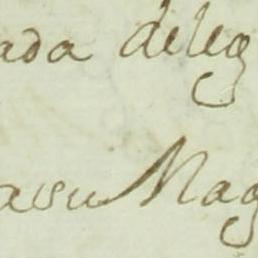 ada deleg
asu Mag